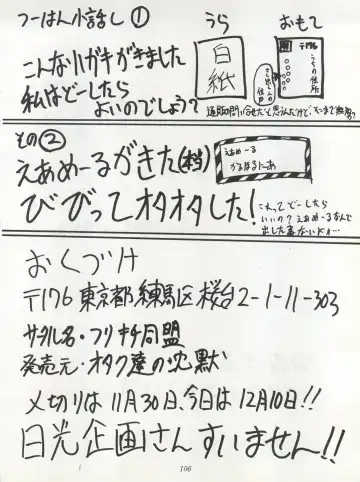 つーはん小話し①
うら
おもて
白紙
〒176
うちの住所
こんなハガキがきました
私はどーしたら
よいのでしょう?
その②
えあめーるがきた(本当)
びびってオタオタした!
えあめーる
かるほるにあ
これってどーしたら
いいの?えあめーるなんて
出した事ないよォ…
おくづけ
〒176 東京都練馬区桜台2-1-11-303
サークル名・フリチチ同盟
発売元・オタク達の沈黙
〆切りは11月30日、今日は12月10日!!
日光企画さんすいません!!
106